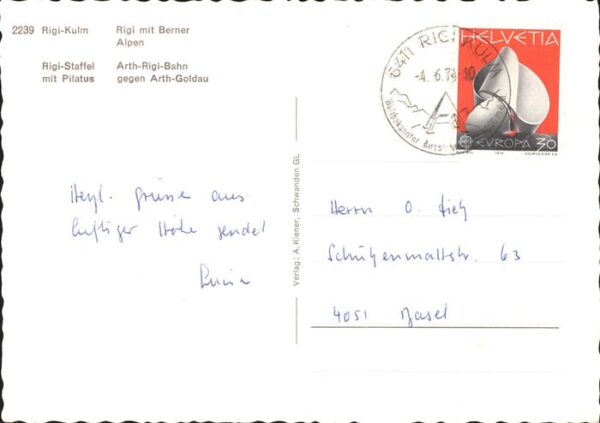 2239 Rigi-Kulm
Rigi mit Berner
Alpen
Rigi-Staffel
mit Pilatus
Arth-Rigi-Bahn
gegen Arth-Goldau
6411 RIGI KULM
-4. 6. 10
HELVETIA
EUROPA 30
1974
Verlag: A. Kiener, Schwanden GL
Herzl. Grüsse aus
luftiger Höhe sendet
Lucia
Herrn O.
Schützenmattstr. 63
4051 Basel